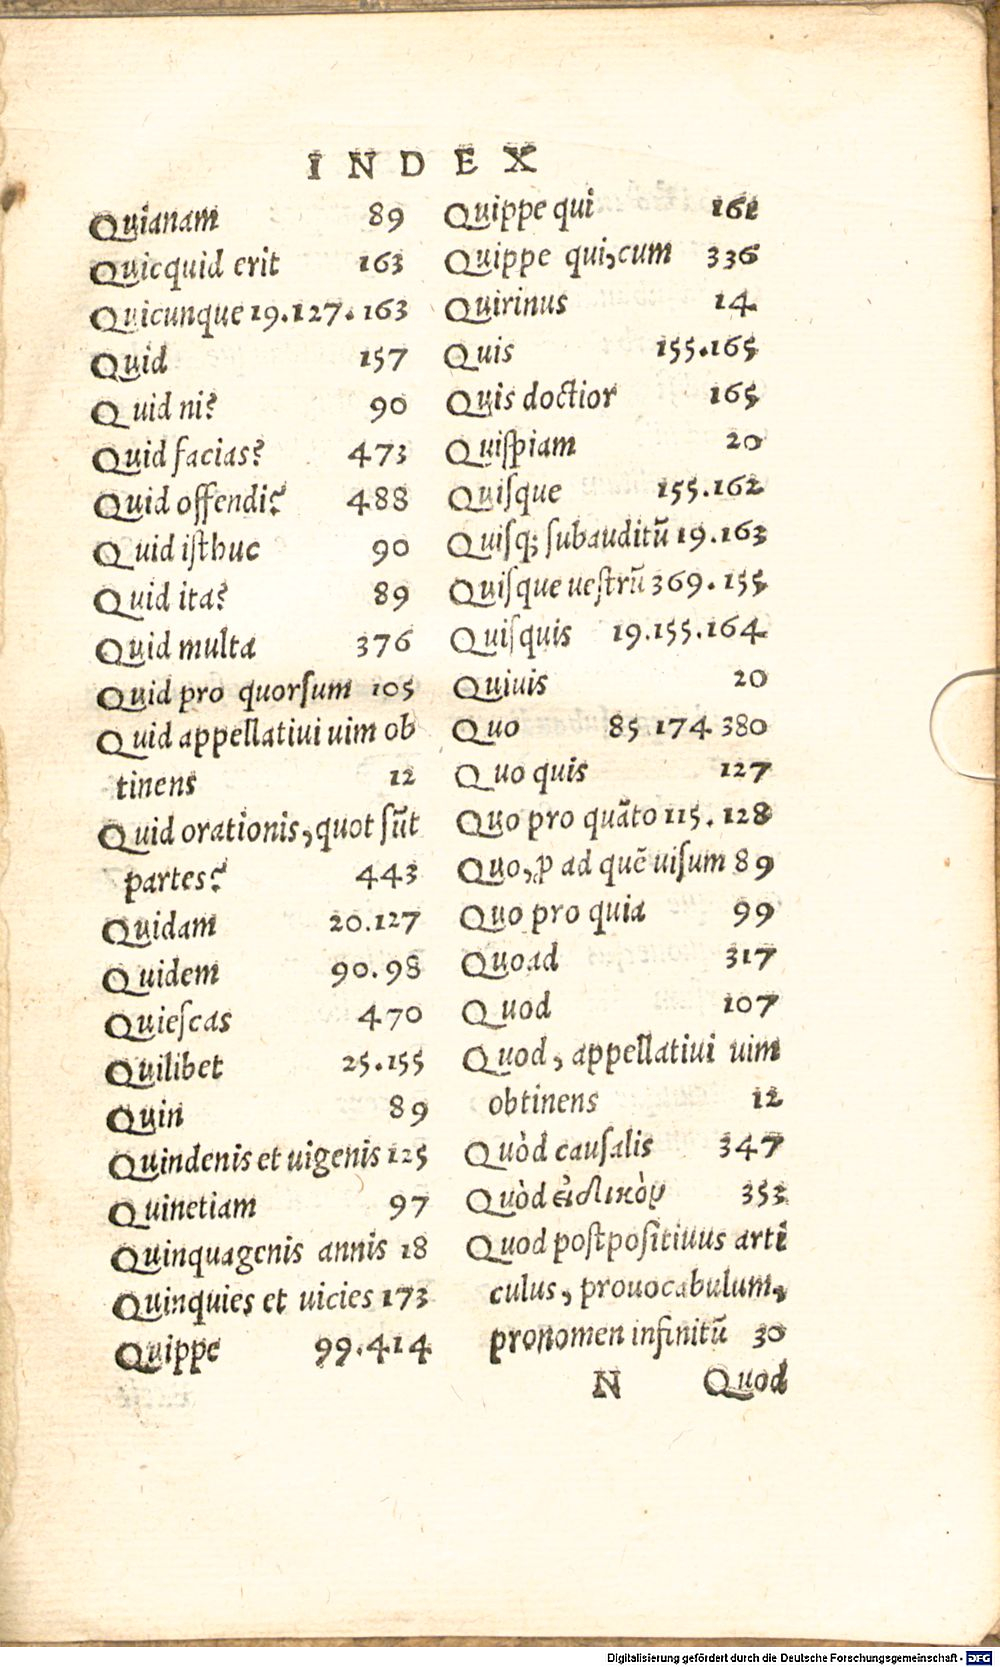 INDEX
Quianam 89
Quicquid erit 163
Quicunque 19.127.163
Quid 157
Quid ni? 90
Quid facias? 473
Quid offendi? 488
Quid iſthuc 90
Quid ita? 89
Quid multa 376
Quid pro quorſum 105
Quid appellatiui uim ob
tinens 12
Quid orationis, quot ſūt
partes? 443
Quidam 20.127
Quidem 90.98
Quieſcas 470
Quilibet 25.155
Quin 89
Quindenis et uigenis 125
Quinetiam 97
Quinquagenis annis 18
Quinquies et uicies 173
Quippe 99.414
Quippe qui 161
Quippe qui, cum 336
Quirinus 14
Quis 155.165
Quis doctior 165
Quiſpiam 20
Quiſque 155.162
Quiſq; ſubauditū 19.163
Quiſque ueſtrū 369.155
Quiſquis 19.155.164
Quiuis 20
Quo 85 174 380
Quo quis 127
Quo pro quāto 115. 128
Quo, ꝓ ad quē uiſum 89
Quo pro quia 99
Quoad 317
Quod 107
Quod, appellatiui uim
obtinens 12
Quòd cauſalis 347
Quòd εἰδικὸν 353
Quod poſtpoſitiuus arti
culus, prouocabulum,
pronomen infinitū 30
N Quod
Digitalisierung gefördert durch die Deutsche Forschungsgemeinschaft - DFG